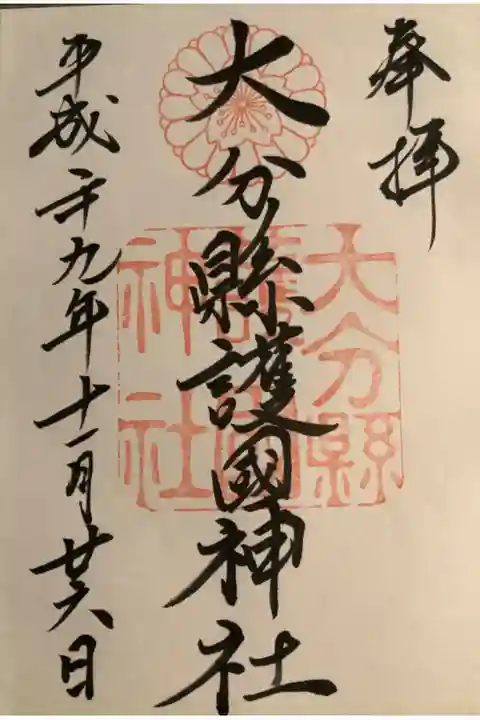 奉拝
大分縣護國神社
平成二十九年十一月廿六日
大分縣
護國
神社